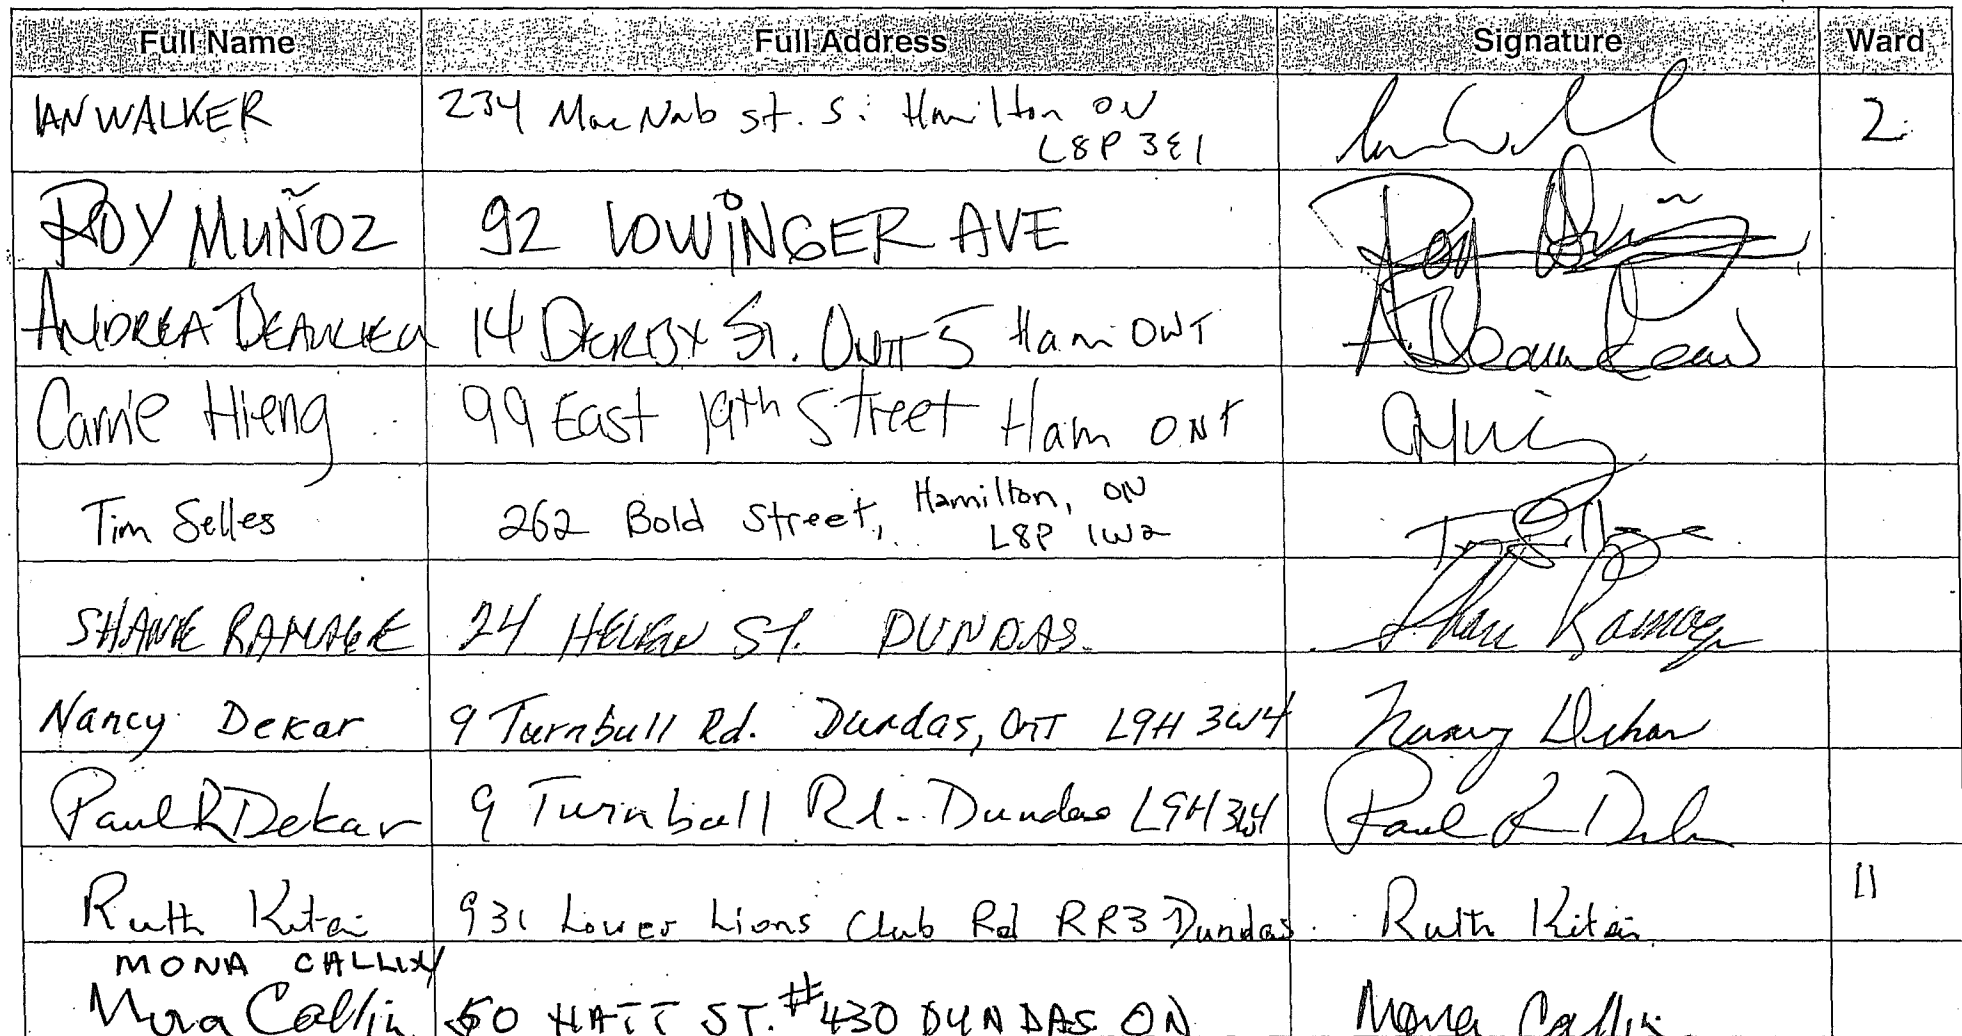 Full Name Full Address Signature Ward
IAN WALKER 234 MacNab St. S. Hamilton ON 2
L8P 3E1
ROY MUÑOZ 92 LOWINGER AVE
ANDREA BEAULIEU 14 DERBY St. UNIT 5 Ham ONT
Carrie Hieng 99 East 19th Street Ham ONT
Tim Selles 262 Bold Street, Hamilton, ON
L8P 1W2
SHANE RAMAGE 24 HELEN ST. DUNDAS Shane Ramage
Nancy Dekar 9 Turnbull Rd. Dundas, ONT L9H 3W4 Nancy Dekar
Paul R Dekar 9 Turnbull Rd. Dundas L9H 3W4 Paul R Dekar
Ruth Kitai 931 Lower Lions Club Rd RR3 Dundas Ruth Kitai 11
MONA CALLIN
Mona Callin 50 HATT ST. #430 DUNDAS ON Mona Callin